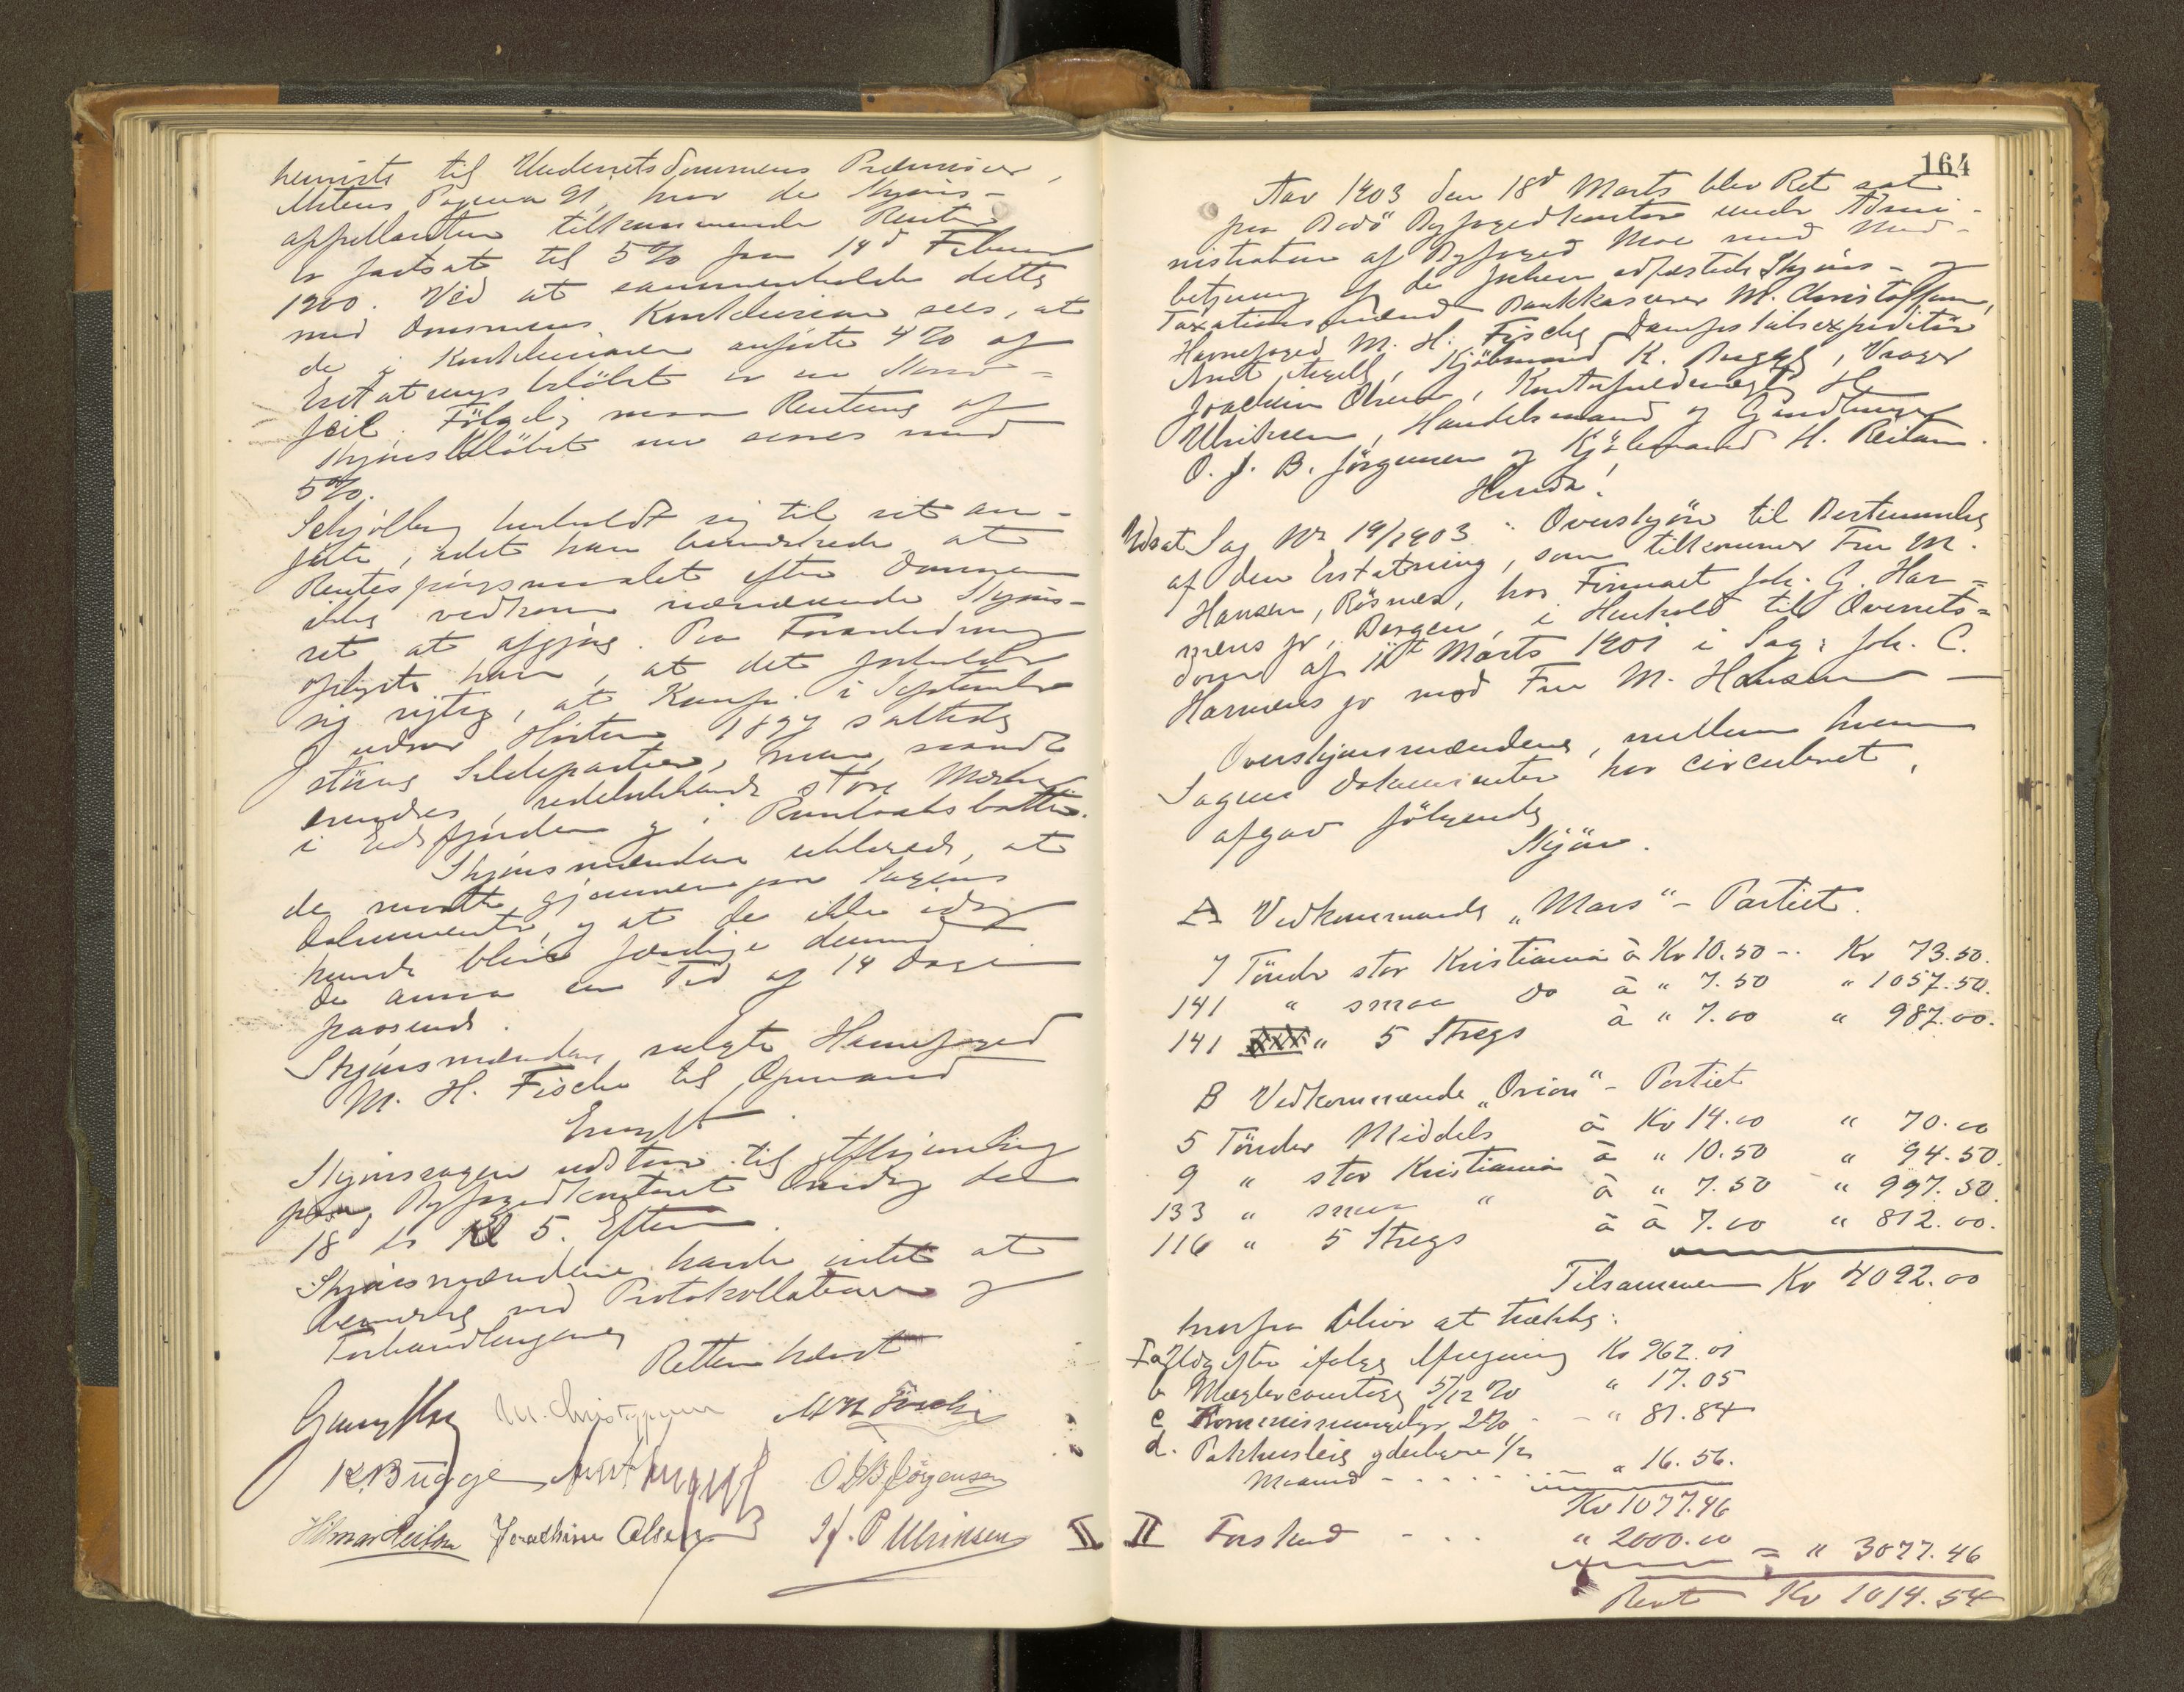 henviste til Underretsdommens Præmisser,
Aktens Pagina 91, hvor de Skjøns-
appellanten tilkommende Renter
er fastsat til 5% fra 14d Februar
1900. Ved at sammenholde dette
med Dommens Konklusion sees, at
de i Konklusionen anførte 4% af
Erstatningsbeløbet er en
feil. Følgelig maa Renterne af
Skjønsbeløbet sees med
5%.
Schjølberg henholdt sig til sit an-
førte, idet han bemærkede, at
Rentespørgsmaalet efter Dommen
ikke vedkom nærværende Skjøns-
ret at afgjøre. Paa Foranledning
oplyste han, at det forholder
sig rigtig, at Komp. i September
og udover Høsten 1897 saltede
større Sildepartier,
store Mærker
i Eidsfjorden og i
Skjønsmændene erklærede, at
de maatte gjennemgaa Sagens
Dokumenter, og at de ikke idag
kunde blive færdige dermed
de ansaa en Tid af 14 Dage
passende.
Skjønsmændene valgte Havnefoged
M. H. Fischer til Opmand
Eragtet
Skjønssagen udstaar til Afhjemling
paa Byfogedkontoret Onsdag den
18 ds Kl 5. Efterm.
Skjønsmændene havde intet at
bemærke ved Protokollationen og
Forhandlingerne
Retten hævet
Georg Moe M. Christophersen M H Fischer
K. Bugge Arnt Angell O J B Jørgensen
Hilmar Reitan Joachim Olsen H. P Ulriksen II
164
Aar 1903 den 18d Marts blev Ret sat
paa Bodö Byfogedkontor under Admi-
nistration af Byfoged Moe med Med-
betjening af de forhen edfæstede Skjøns- og
Taxationsmænd Bankkasserer M. Christoffersen,
Havnefoged M. H. Fischer, Dampskibsexpeditör
Arnt Angell, Kjöbmand K. Bugge, Vrager
Joachim Olsen, Kontorfuldmægtig H.
Ulriksen, Handelsmand og
O. J. B. Jörgensen og Kjöbmand H. Reitan.
Hvorda!
Udsat Sag No 19/1903: Overskjön til Bestemmelse
af den Erstatning, som tilkommer Fru M.
Hansen, Rösnes, hos Firmaet Joh. C. Har-
mens jr, Bergen, i Henhold til Overrets-
dom af Marts 1901 i Sag: Joh. C.
Harmens jr mod Fru M. Hansen —
Overskjønsmændene, mellem hvem
Sagens Dokumenter har circuleret,
afgav fölgende
Skjön.
A Vedkommende „Mars“ - Partiet.
7 Tönder stor Kristiania à Kr 10.50 -- Kr 73.50.
141 " smaa do à " 7.50 " 1057.50.
141 " 5 Stregs à " 7.00 " 987.00.
B Vedkommende „Orion“ - Partiet
5 Tönder Middels à Kr 14.00 " 70.00
9 " stor Kristiania à " 10.50 " 94.50.
133 " smaa " à " 7.50 " 997.50.
116 " 5 Stregs à à 7.00 " 812.00.
Tilsammen Kr 4092.00
hvorfra bliver at trække:
I a Udgifter ifølge Afregning Kr 962.01
b Mæglercourtage 5/12 % " 17.05
c Kommissionsgebyr 2% - - " 81.84
d. Pakhusleie yderligere 1/2
Maaned - - - - - " 16.56.
Kr 1077.46
II Forskud - - - " 2000.00
= " 3077.46
Rest Kr 1014.54